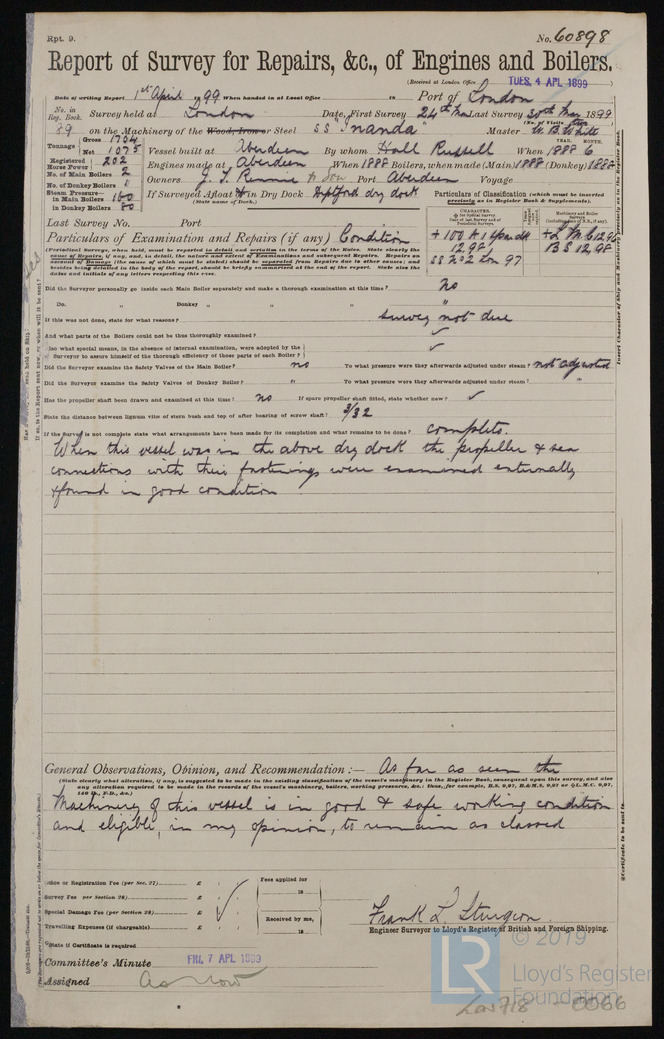 Rpt. 9.
No. 60898
Report of Survey for Repairs, &c., of Engines and Boilers.
(Received at London Office TUES. 4 APL 1899)
Date of writing Report 1st April 1899 When handed in at Local Office 18 Port of London
No. in Reg. Book. Survey held at London Date, First Survey 24th Mar Last Survey 30th Mar 1899
89 on the Machinery of the Wood, Iron or Steel SS "Inanda" Master W. B. White
Tonnage Gross 1704 Net 1075 Vessel built at Aberdeen By whom Hall Russell When 1888 6
Registered Horse Power 202 Engines made at Aberdeen When 1888 Boilers, when made (Main) 1888 (Donkey) 1888
No. of Main Boilers 2 Owners J. T. Rennie & Son Port Aberdeen Voyage
No. of Donkey Boilers 1
Steam Pressure in Main Boilers 160 in Donkey Boilers 80
If Surveyed Afloat or in Dry Dock Deptford dry dock
(State name of Dock.)
Particulars of Classification (which must be inserted precisely as in Register Book & Supplements).
+ 100 A 1
12,98
SS No 2 Lon 97
+ LMC 12,96
BS 12,98
Last Survey No. Port
Particulars of Examination and Repairs (if any) Condition
Did the Surveyor personally go inside each Main Boiler separately and make a thorough examination at this time? no
Do. " Donkey " " " "
If this was not done, state for what reasons? survey not due
And what parts of the Boilers could not be thus thoroughly examined? ✓
Also what special means, in the absence of internal examination, were adopted by the Surveyor to assure himself of the thorough efficiency of those parts of each Boiler? ✓
Did the Surveyor examine the Safety Valves of the Main Boiler? no To what pressure were they afterwards adjusted under steam? not adjusted
Did the Surveyor examine the Safety Valves of Donkey Boiler? " To what pressure were they afterwards adjusted under steam? "
Has the propeller shaft been drawn and examined at this time? no If spare propeller shaft fitted, state whether new? ✓
State the distance between lignum vitæ of stern bush and top of after bearing of screw shaft? 3/32
If the Survey is not complete state what arrangements have been made for its completion and what remains to be done? complete.
When this vessel was in the above dry dock the propeller & sea
connections with their fastenings were examined externally
& found in good condition
General Observations, Opinion, and Recommendation:— As far as seen the
(State clearly what alteration, if any, is suggested to be made in the existing classification of the vessel's machinery in the Register Book, consequent upon this survey, and also
any alteration required to be made in the records of the vessel's machinery, boilers, working pressures, &c.: thus, for example, B.S. 9,97, B.&M.S. 9,97 or L.M.C. 9,97,
140 lb., F.D., &c.)
Machinery of this vessel is in good & safe working condition
and eligible, in my opinion, to remain as classed
Office or Registration Fee (per Sec. 27) £
Survey Fee per Section 28) £
Special Damage Fee (per Section 28) £
Travelling Expenses (if chargeable) £
Fees applied for 18
Received by me, 18
Frank L. Sturgeon.
Engineer Surveyor to Lloyd's Register of British and Foreign Shipping.
State if Certificate is required
Committee's Minute FRI. 7 APL 1899
Assigned as now
LR
© 2019
Lloyd's Register
Foundation
Lon 718 - 0066